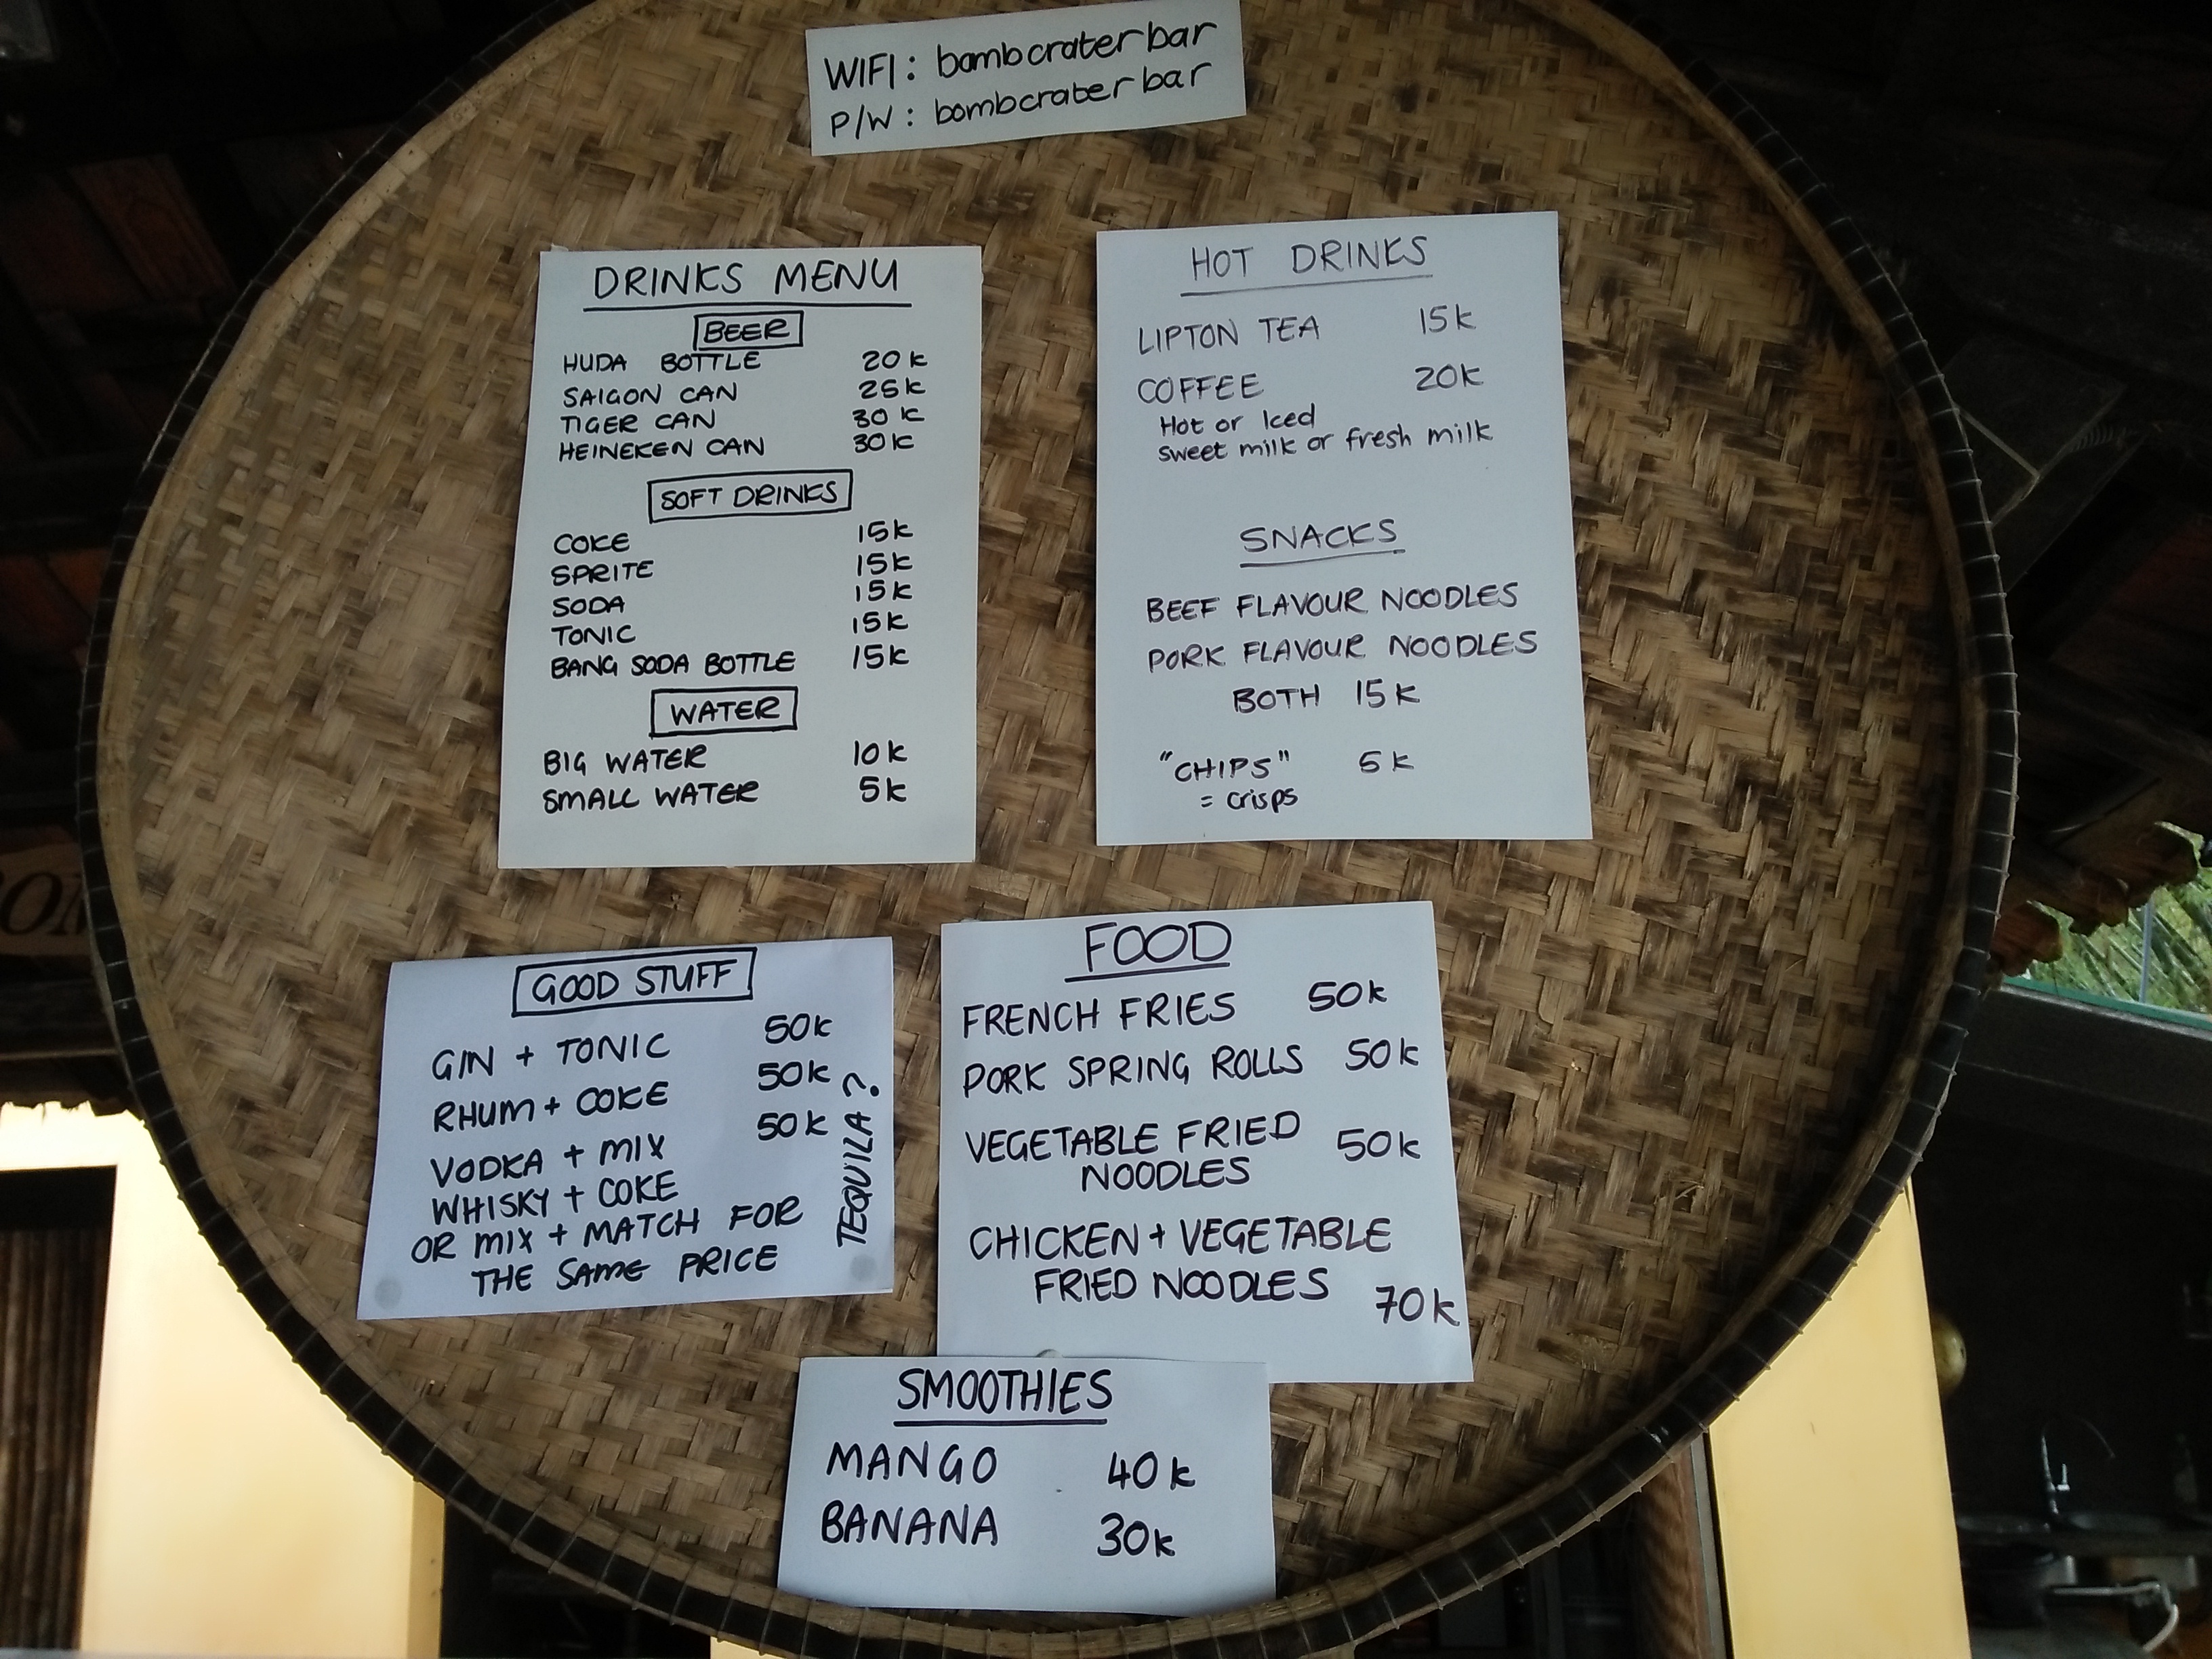 WIFI: bombcraterbar
P/W: bombcraterbar
DRINKS MENU
BEER
HUDA BOTTLE 20k
SAIGON CAN 25k
TIGER CAN 30k
HEINEKEN CAN 30k
SOFT DRINKS
COKE 15k
SPRITE 15k
SODA 15k
TONIC 15k
BANG SODA BOTTLE 15k
WATER
BIG WATER 10k
SMALL WATER 5k
HOT DRINKS
LIPTON TEA 15k
COFFEE 20k
Hot or Iced
sweet milk or fresh milk
SNACKS
BEEF FLAVOUR NOODLES
PORK FLAVOUR NOODLES
BOTH 15k
"CHIPS" 5k
= crisps
GOOD STUFF
GIN + TONIC 50k
RHUM + COKE 50k
VODKA + MIX 50k
WHISKY + COKE
OR MIX + MATCH FOR
THE SAME PRICE
TEQUILA?
FOOD
FRENCH FRIES 50k
PORK SPRING ROLLS 50k
VEGETABLE FRIED
NOODLES 50k
CHICKEN + VEGETABLE
FRIED NOODLES
70k
SMOOTHIES
MANGO 40k
BANANA 30k